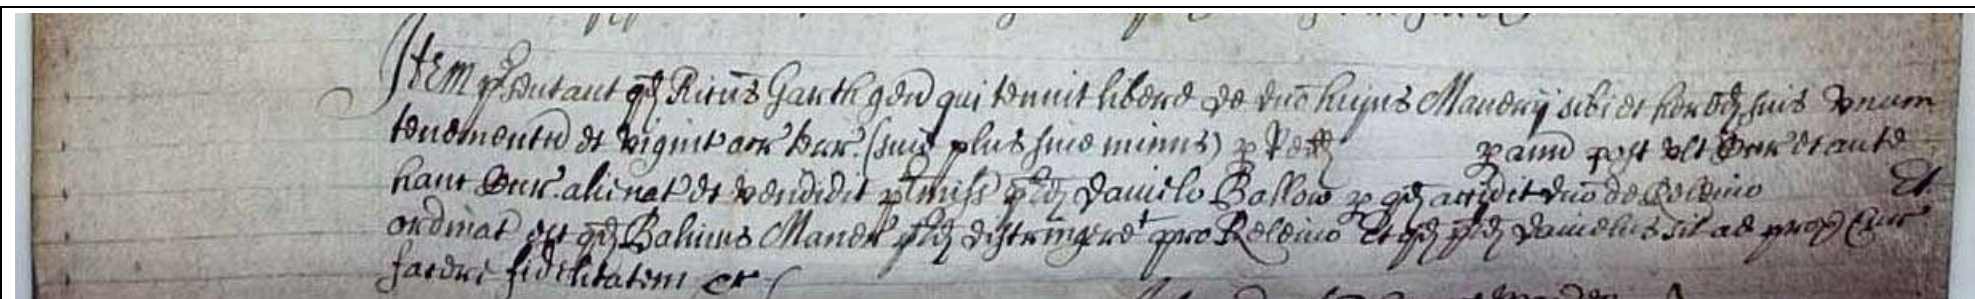 Item p'sentant qd Ricus Garth gen qui tenuit libere de dno hujus Manerij sibi et hered suis unum
tenementu et vigint acr terr (sive plus sive minus) p Redd p annu post ult Cur et ante
hanc Cur alienat et vendidit p'miss p'd Danielo Ballow p qd accidit dno de Relevio Et
ordinat est qd Balivus Maner p'd distringeret pro Relevio Et qd p'd Danielus sit ad prox Cur
facere fidelitatem &c